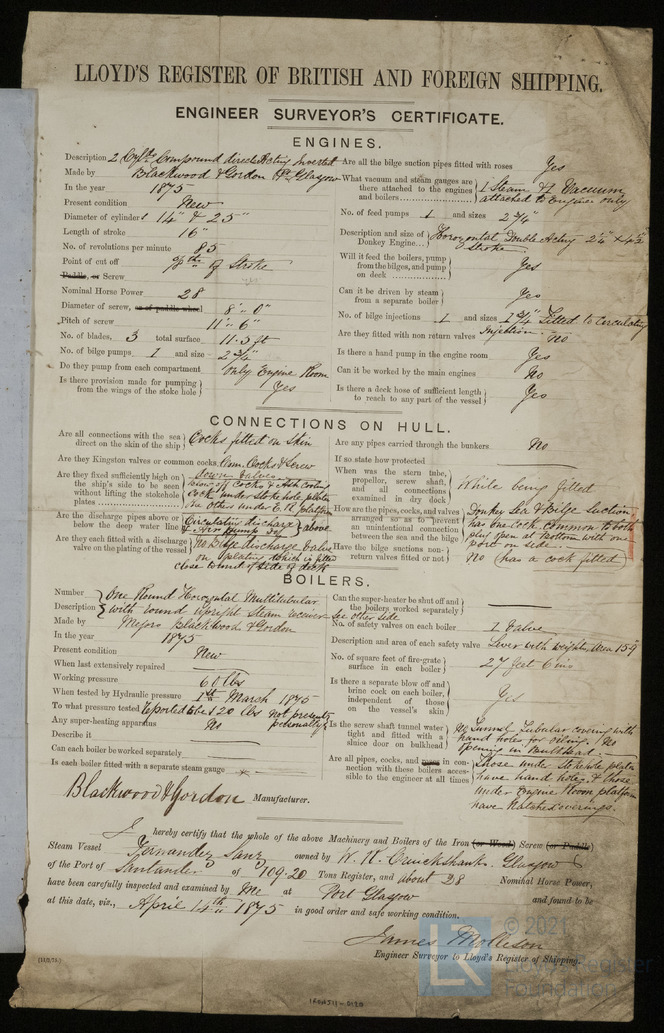 LLOYD'S REGISTER OF BRITISH AND FOREIGN SHIPPING.
ENGINEER SURVEYOR'S CERTIFICATE.
ENGINES.
Description 2 Cyldr Compound direct Acting Inverted
Made by Blackwood & Gordon Pt Glasgow
In the year 1875
Present condition New
Diameter of cylinders 14" & 25"
Length of stroke 16"
No. of revolutions per minute 85
Point of cut off of Stroke
Paddle, or Screw
Nominal Horse Power 28
Diameter of screw, as of paddle wheel 8'. 0"
Pitch of screw 11'. 6"
No. of blades, 3 total surface 11.5 ft
No. of bilge pumps 1 and size 2 3/4"
Do they pump from each compartment only Engine Room
Is there provision made for pumping from the wings of the stoke hole Yes
Are all the bilge suction pipes fitted with roses Yes
What vacuum and steam gauges are there attached to the engines and boilers 1 Steam & 1 Vacuum attached to Engine only
No. of feed pumps 1 and sizes 2 3/4"
Description and size of Donkey Engine... Horozontal Double Acting 2 1/4" × 4 1/2" Stroke
Will it feed the boilers, pump from the bilges, and pump on deck Yes
Can it be driven by steam from a separate boiler Yes
No. of bilge injections 1 and sizes 1 3/4" Fitted to Circulating Injection
Are they fitted with non return valves No
Is there a hand pump in the engine room Yes
Can it be worked by the main engines No
Is there a deck hose of sufficient length to reach to any part of the vessel Yes
CONNECTIONS ON HULL.
Are all connections with the sea direct on the skin of the ship Cocks fitted on Skin
Are they Kingston valves or common cocks Com. Cocks & Screw down valves
Are they fixed sufficiently high on the ship's side to be seen without lifting the stokehole plates blow off Cocks & Ash Cooling Cock under Stoke hole plates the others under E. R. platform
Are the discharge pipes above or below the deep water line Circulating discharge & Air pump do above
Are they each fitted with a discharge valve on the plating of the vessel No Bilge discharge valve on plating which is fitted close to und of side of deck
Are any pipes carried through the bunkers No
If so state how protected
When was the stern tube, propeller, screw shaft, and all connections examined in dry dock While being fitted
How are the pipes, cocks, and valves arranged so as to prevent an unintentional connection between the sea and the bilge Donkey Sea & Bilge Suction has one Cock common to both plug open at bottom with one port on side.
Have the bilge suctions non-return valves fitted or not No (has a cock fitted)
BOILERS.
Number One Round Horozontal Multitubular
Description with round upright Steam receiver See other side
Made by Messrs Blackwood & Gordon
In the year 1875
Present condition New
When last extensively repaired
Working pressure 60 lbs
When tested by Hydraulic pressure 1st March 1875
To what pressure tested reported to be 120 lbs not present personally
Any super-heating apparatus No
Describe it
Can each boiler be worked separately
Is each boiler fitted with a separate steam gauge
Blackwood & Gordon Manufacturer.
Can the super-heater be shut off and the boilers worked separately
No. of safety valves on each boiler 1 Valve
Description and area of each safety valve Lever with weights, Area 15.9
No. of square feet of fire-grate surface in each boiler 27 feet 6 ins
Is there a separate blow off and brine cock on each boiler, independent of those on the vessel's skin Yes
Is the screw shaft tunnel water tight and fitted with a sluice door on bulkhead No Tunnel Tubular covering with hand holes for oiling. No opening in Bulkhead.
Are all pipes, cocks, and in connection with these boilers accessible to the engineer at all times Those under Stokehole plates have hand holes & those under Engine Room platform have Hatched coverings.
I hereby certify that the whole of the above Machinery and Boilers of the Iron (or Wood) Screw (or Paddle)
Steam Vessel Fernandez Sanz owned by W. R. Cruickshank. Glasgow
of the Port of Santander of 109.20 Tons Register, and about 28 Nominal Horse Power,
have been carefully inspected and examined by Me at Port Glasgow and found to be
at this date, viz., April 14th 1875 in good order and safe working condition.
James Mollison
Engineer Surveyor to Lloyd's Register of Shipping.
LR © 2021
Lloyd's Register
Foundation